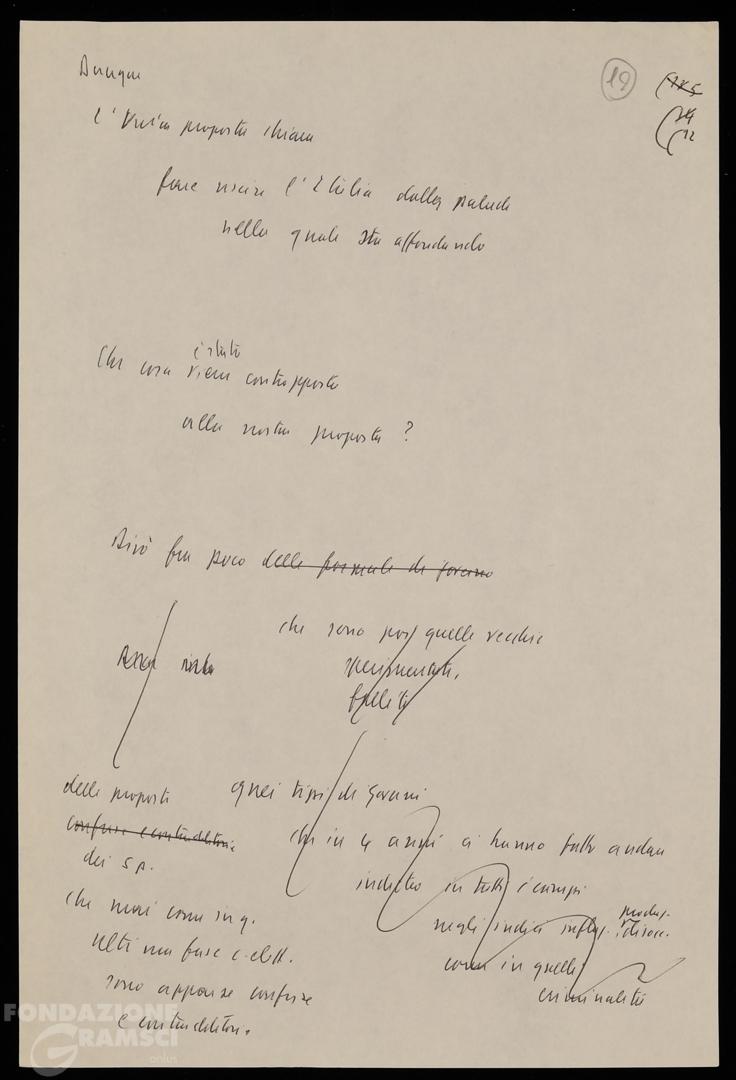 Dunque
19
l'Unica proposta chiara
fare uscire l'Italia dalla palude
nella quale sta affondando
è stata
Che cosa viene contrapposto
alla nostra proposta ?
Dirò fra poco delle formule di governo
che sono poi quelle vecchie
sperimentate,
fallite
quei tipi di Governi
che in 4 anni ci hanno fatto andare
indietro in tutti i campi
negli indici inflaz. produz. disocc.
come in quelli
criminalità
delle proposte
confuse e contraddittorie
dei s p.
che mai come in q.
ultima fase c. elett.
sono apparse confuse
e contraddittorie.
FONDAZIONE
GRAMSCI
onlus